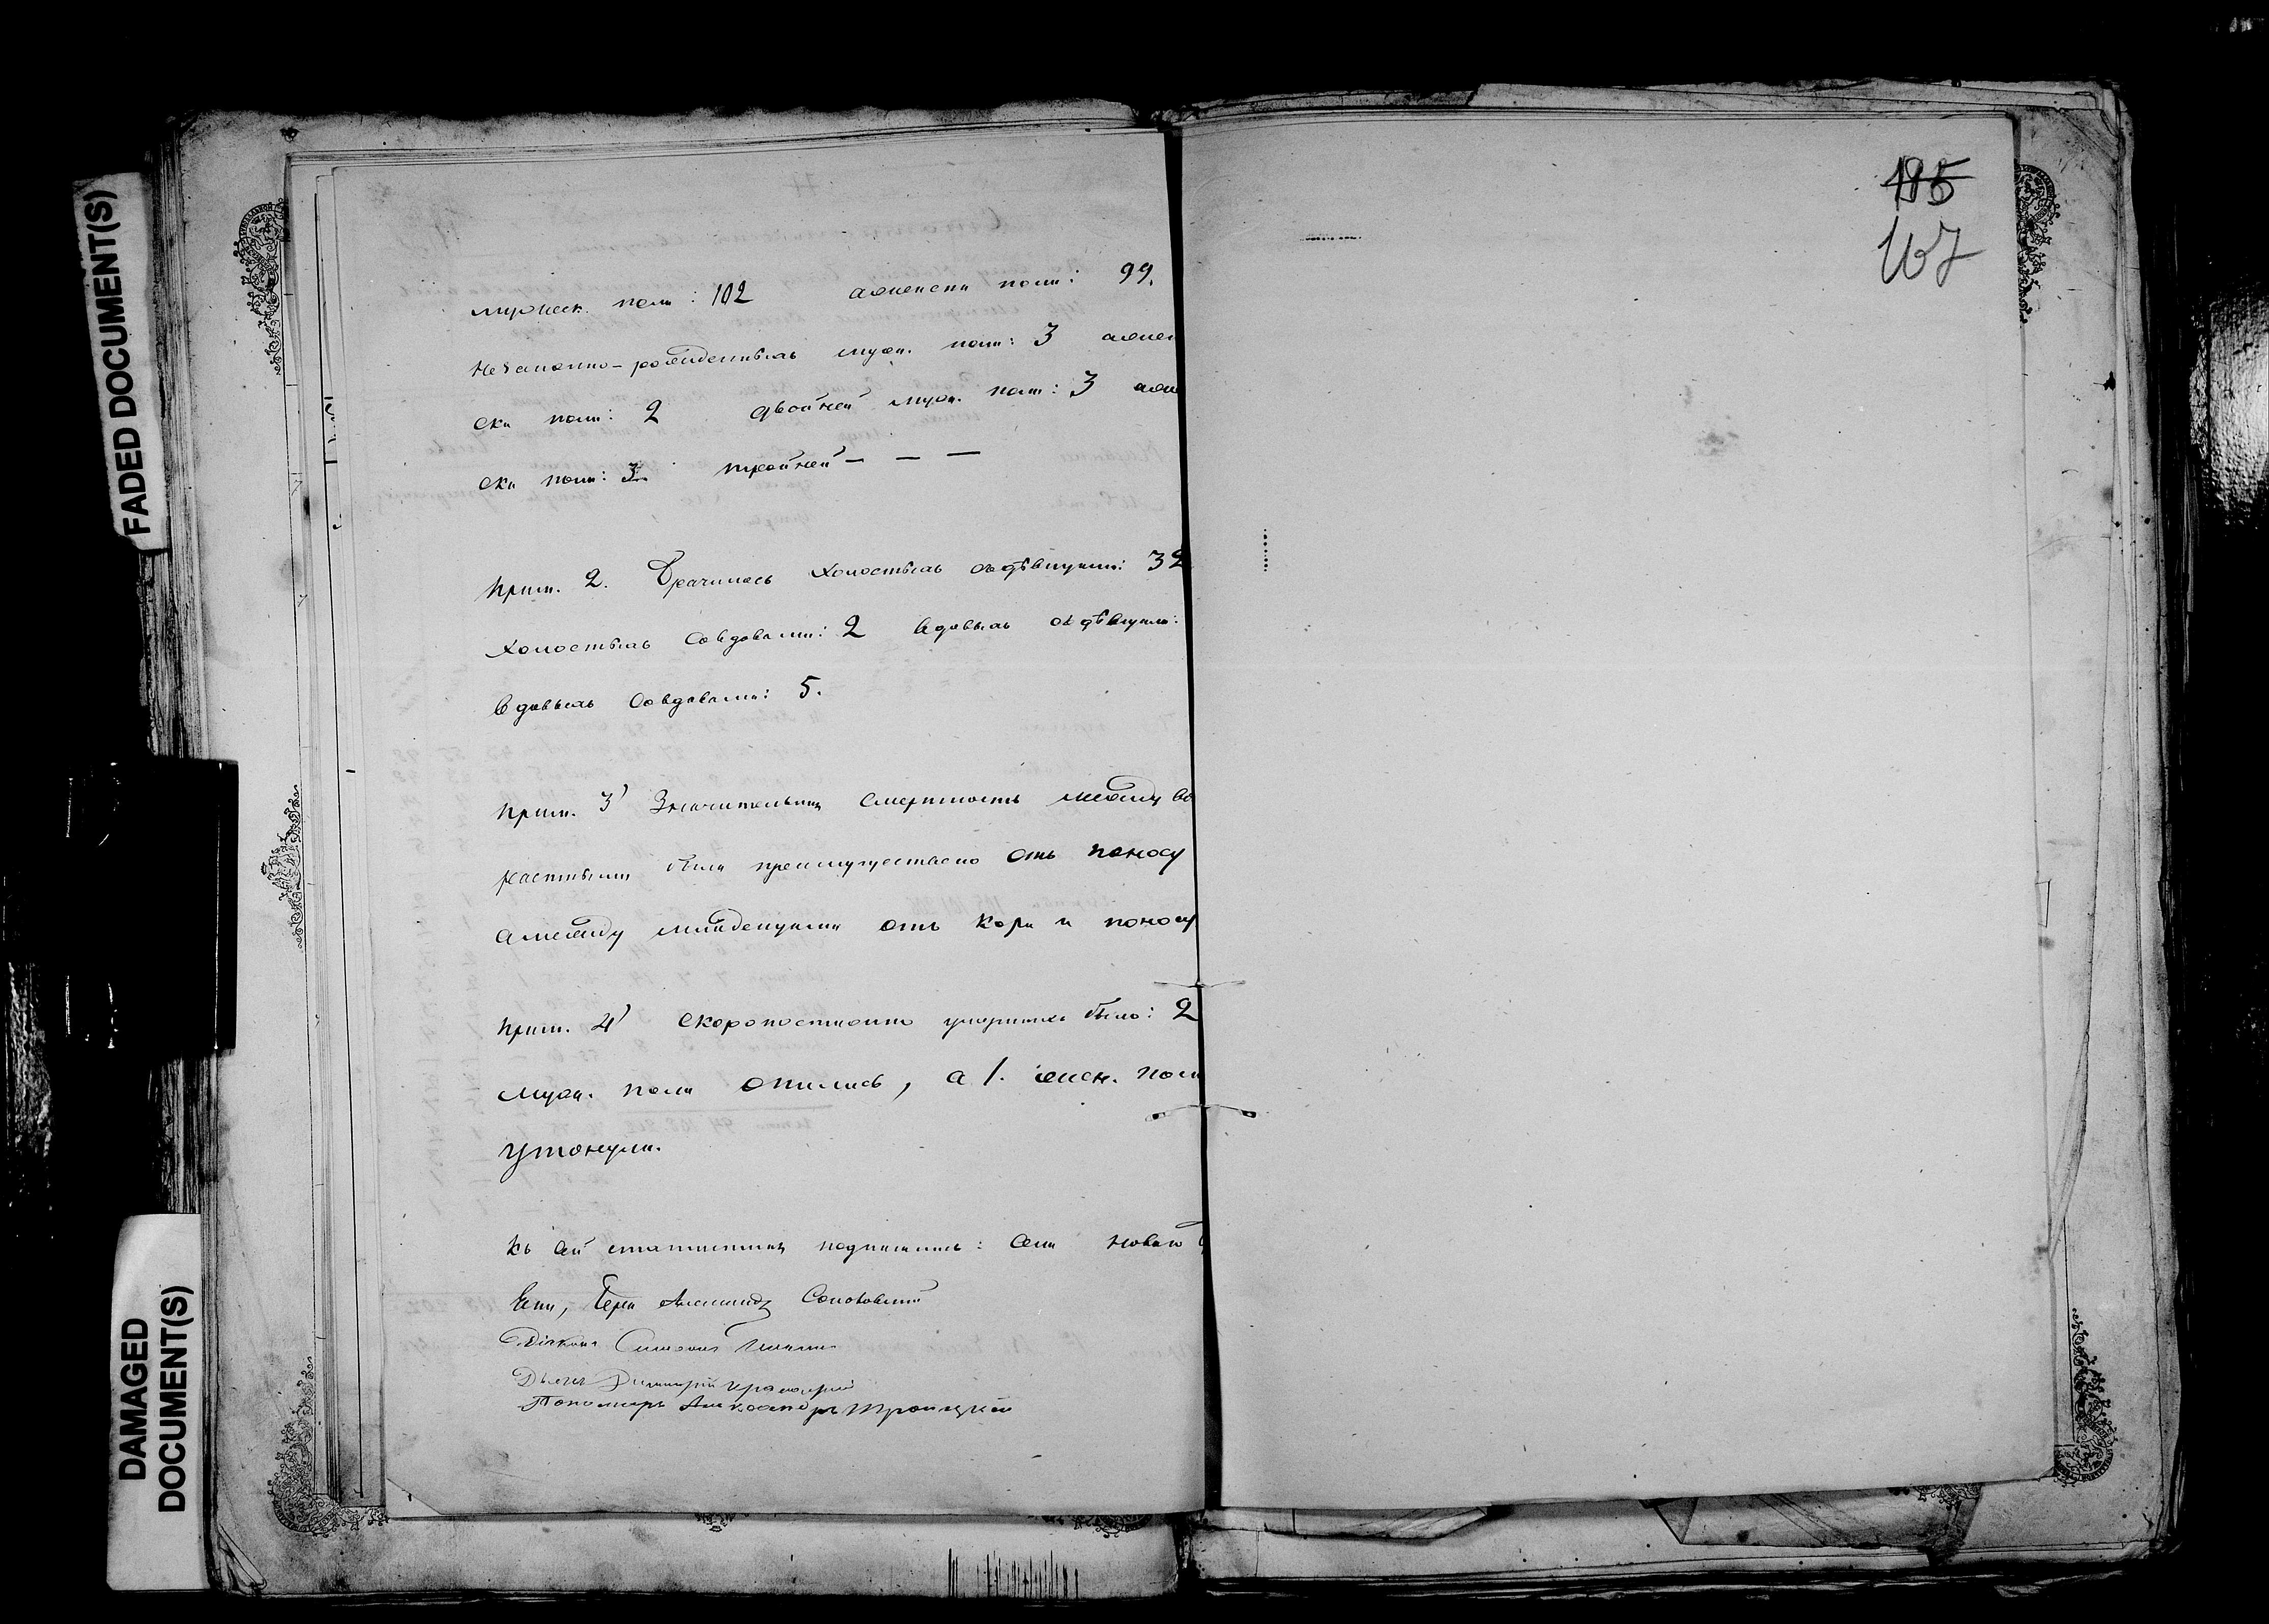 195
167
FADED DOCUMENT(S)
DAMAGED
DOCUMENT(S)
мужеск. пола: 102 а женска пола: 99.
Незаконно-рожденныхъ муж. пола: 3 а жен
ска пола: 2 двойней муж. пола: 3 а жен
ска пола: 3 тройней — — —
Прим. 2. Брачилось холостыхъ съ дѣвицами: 32
холостыхъ со вдовами: 2 вдовыхъ съ дѣвицами:
вдовыхъ со вдовами: 5.
Прим. 3 Значительная смертность между во
растными была преимущественно отъ поносу
а между младенцами отъ кори и поносу
Прим. 4 Скоропостижно умершихъ было: 2
муж. пола опились, а 1. женск. пола
утонула.
Къ сей статистикѣ подписались: села Новой
Діаконъ Симеонъ
Дьячекъ Димитрій
Пономарь Александръ Троицкій